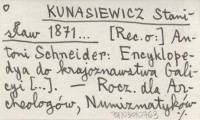 KUNASIEWICZ Stani-
sław 1871... [Rec. o:] An-
toni Schneider: Encyklope-
dya do krajoznawstwa Gali-
cyi [..]. — Rocz. dla Ar-
cheologów, Numizmatyków